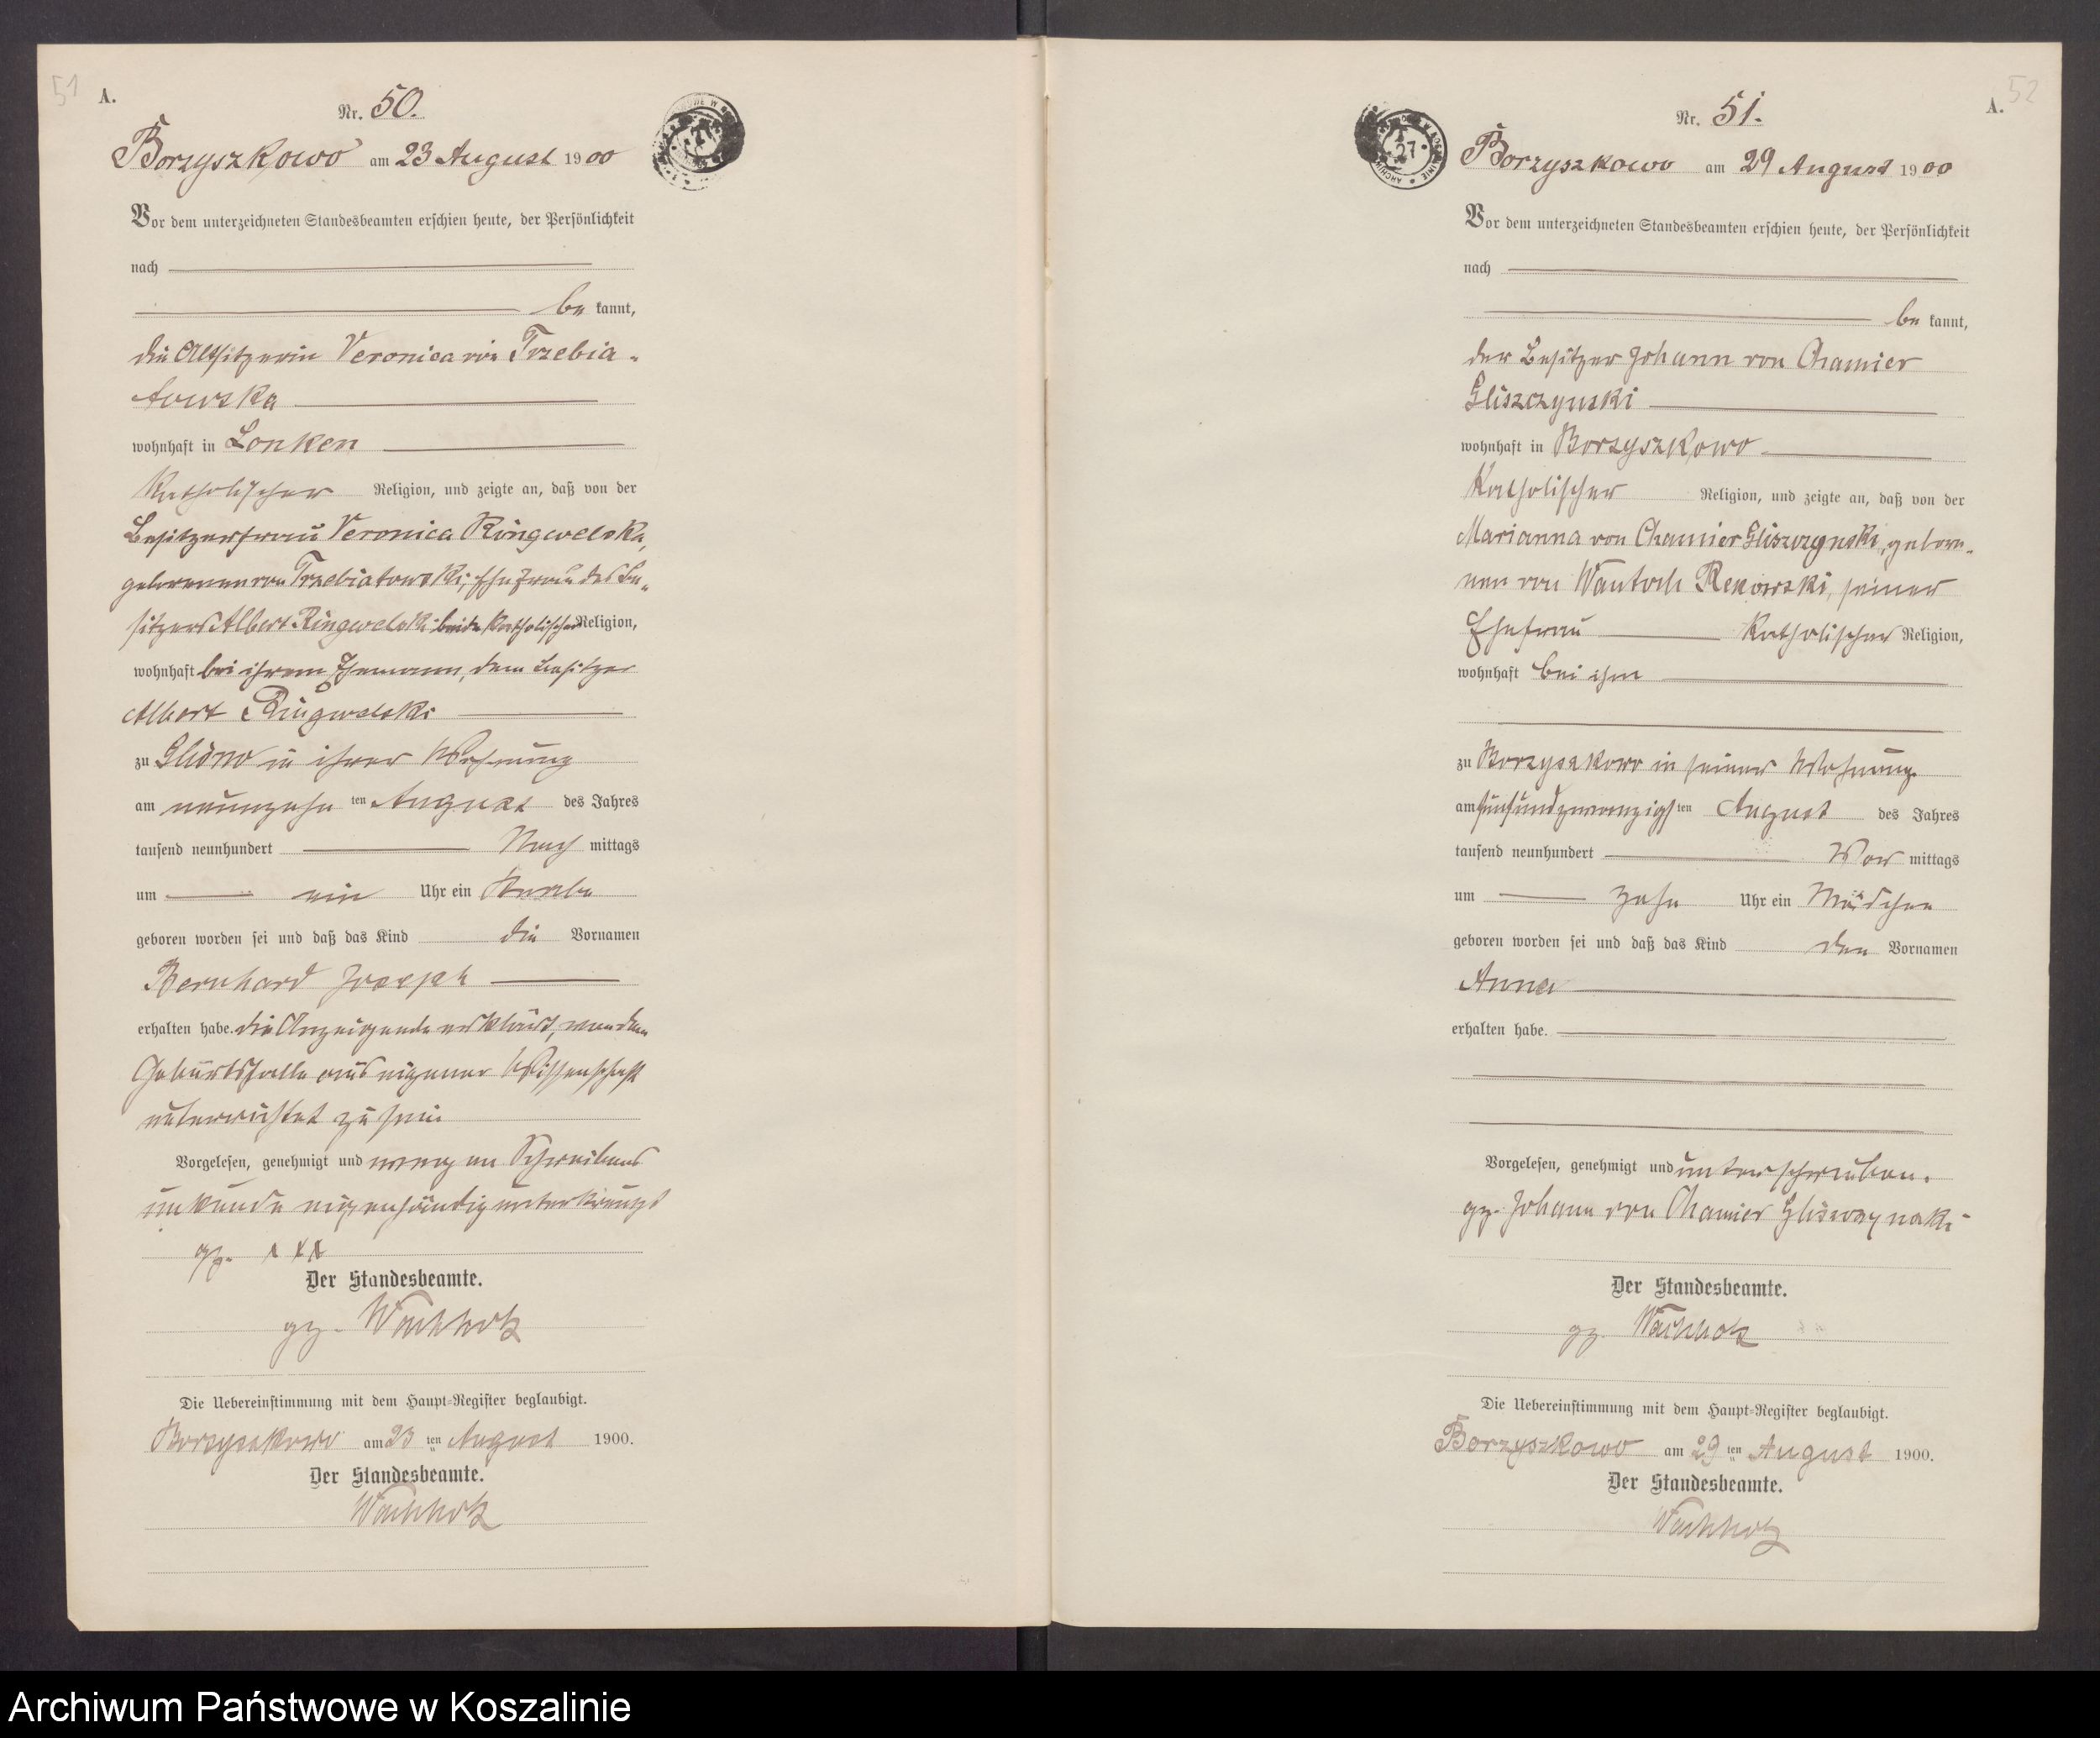 51
A.
Nr. 50.
Borzyszkowo am 23 August 1900
Vor dem unterzeichneten Standesbeamten erschien heute, der Persönlichkeit
nach
be kannt,
die Altsitzerin Veronica von Trzebia-
towska
wohnhaft in Lonken
katholischer Religion, und zeigte an, daß von der
Besitzerfrau Veronica Ringwelska,
geborenen von Trzebiatowski, Ehefrau des Be-
sitzers Albert Ringwelski beide katholischer Religion,
wohnhaft bei ihrem Ehemann, dem Besitzer
Albert Ringwelski
zu Glisno in ihrer Wohnung
am neunzehn ten August des Jahres
tausend neunhundert Nach mittags
um ein Uhr ein Knabe
geboren worden sei und daß das Kind die Vornamen
Bernhard Joseph
erhalten habe. die Anzeigende erklärt, von dem
Geburtsfalle aus eigener Wissenschaft
unterrichtet zu sein
Vorgelesen, genehmigt und wegen Schreibens
unkunde eigenhändig unterkreuzt
gz. xxx
Der Standesbeamte.
gz. Wachholz
Die Uebereinstimmung mit dem Haupt-Register beglaubigt.
Borzyszkowo am 23 ten August 1900.
Der Standesbeamte.
Wachholz
52
A.
Nr. 51.
Borzyszkowo am 29 August 1900
Vor dem unterzeichneten Standesbeamten erschien heute, der Persönlichkeit
nach
be kannt,
der Besitzer Johann von Chamier
Gliszczynski
wohnhaft in Borzyszkowo
katholischer Religion, und zeigte an, daß von der
Marianna von Chamier Gliszczynski, gebore-
nen von Wantoch Rekowski, seiner
Ehefrau katholischer Religion,
wohnhaft bei ihm
zu Borzyszkowo in seiner Wohnung
am fünfundzwanzigs ten August des Jahres
tausend neunhundert Vor mittags
um zehn Uhr ein Mädchen
geboren worden sei und daß das Kind den Vornamen
Anna
erhalten habe.
Vorgelesen, genehmigt und unterschrieben.
gz. Johann von Chamier Gliszczynski
Der Standesbeamte.
gz. Wachholz
Die Uebereinstimmung mit dem Haupt-Register beglaubigt.
Borzyszkowo am 29 ten August 1900.
Der Standesbeamte.
Wachholz
Archiwum Państwowe w Koszalinie